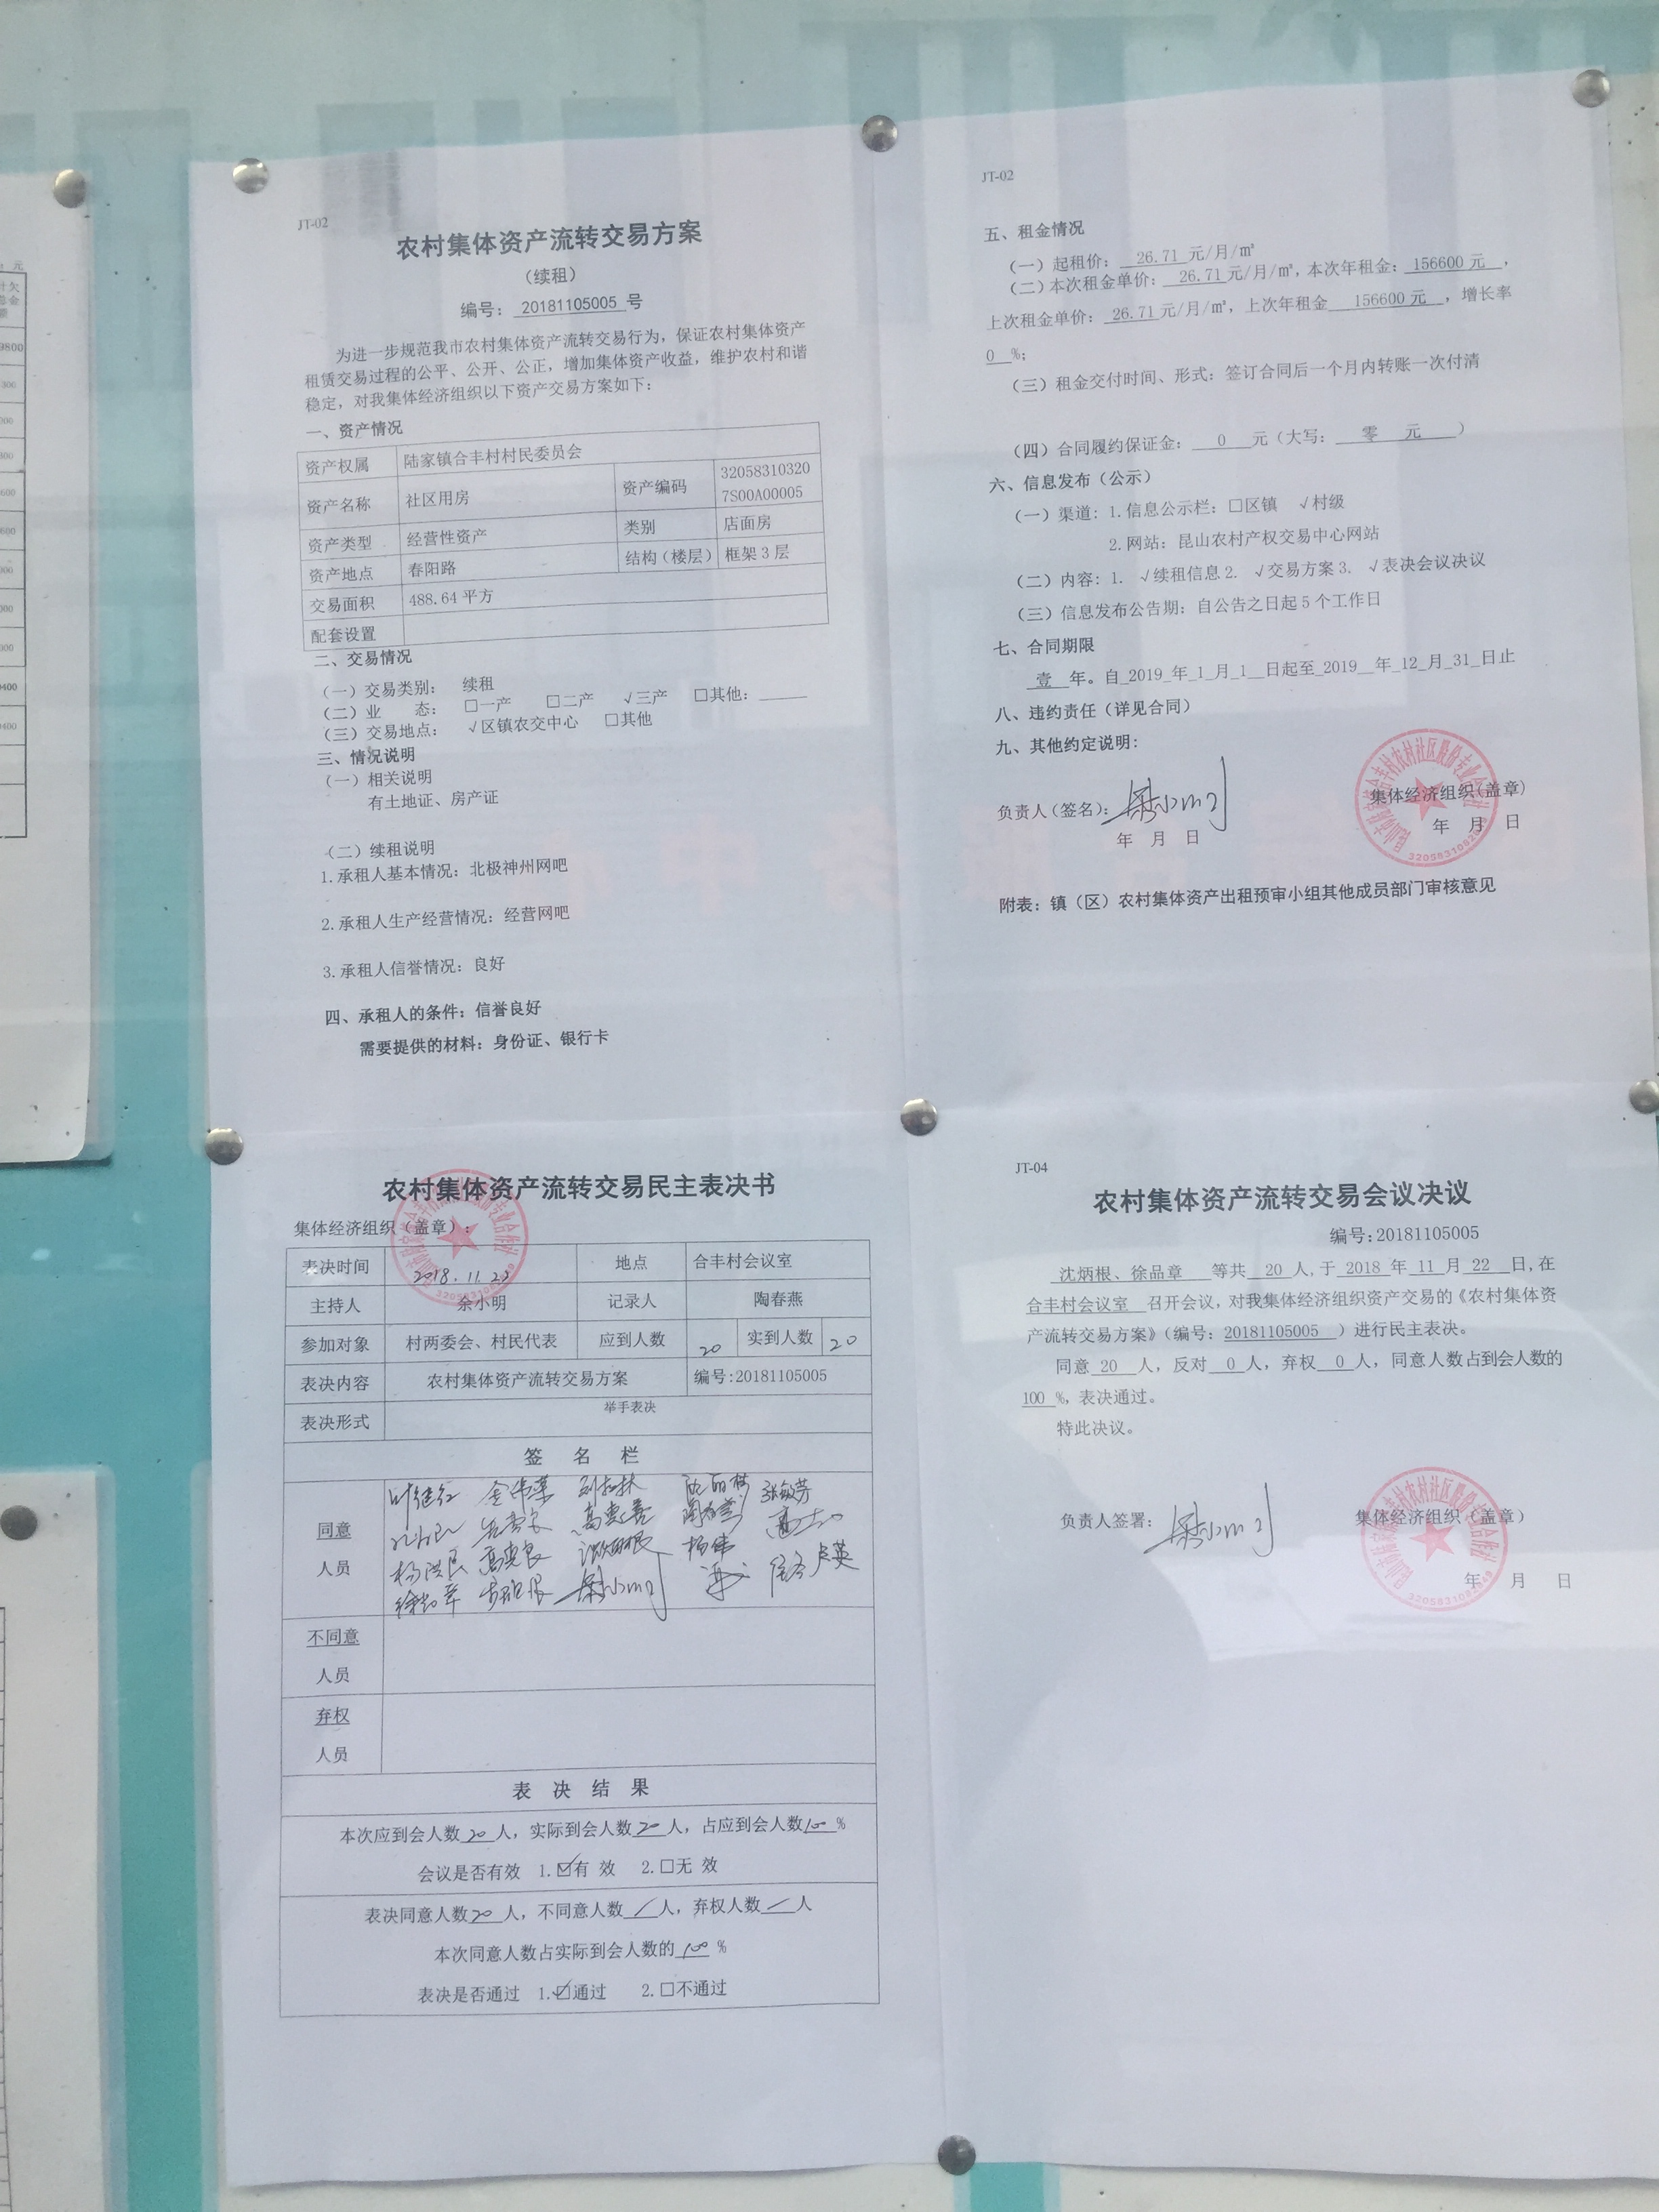 JT-02
农村集体资产流转交易方案
（续租）
编号：20181105005 号
为进一步规范我市农村集体资产流转交易行为，保证农村集体资产
租赁交易过程的公平、公开、公正，增加集体资产收益，维护农村和谐
稳定，对我集体经济组织以下资产交易方案如下：
一、资产情况
资产权属 陆家镇合丰村村民委员会
资产名称 社区用房 资产编码 32058310320
7S00A00005
资产类型 经营性资产 类别 店面房
资产地点 春阳路 结构（楼层） 框架 3 层
交易面积 488.64 平方
配套设置
二、交易情况
（一）交易类别： 续租
（二）业 态： □一产 □二产 √三产 □其他：
（三）交易地点： √区镇农交中心 □其他
三、情况说明
（一）相关说明
有土地证、房产证
（二）续租说明
1.承租人基本情况：北极神州网吧
2.承租人生产经营情况：经营网吧
3.承租人信誉情况：良好
四、承租人的条件：信誉良好
需要提供的材料：身份证、银行卡
JT-02
五、租金情况
（一）起租价： 26.71 元/月/㎡
（二）本次租金单价： 26.71 元/月/㎡，本次年租金：156600 元 ，
上次租金单价： 26.71 元/月/㎡，上次年租金 156600 元 ，增长率
0 %；
（三）租金交付时间、形式：签订合同后一个月内转账一次付清
（四）合同履约保证金： 0 元（大写： 零 元 ）
六、信息发布（公示）
（一）渠道：1.信息公示栏：□区镇 √村级
2.网站：昆山农村产权交易中心网站
（二）内容：1. √续租信息 2. √交易方案 3. √表决会议决议
（三）信息发布公告期：自公告之日起 5 个工作日
七、合同期限
壹 年。自_2019_年_1_月_1__日起至_2019__年_12_月_31_日止
八、违约责任（详见合同）
九、其他约定说明：
负责人（签名）： 集体经济组织（盖章）
年 月 日 年 月 日
3205831082049
附表：镇（区）农村集体资产出租预审小组其他成员部门审核意见
农村集体资产流转交易民主表决书
集体经济组织（盖章）：
表决时间 2018.11.22 地点 合丰村会议室
主持人 余小明 记录人 陶春燕
参加对象 村两委会、村民代表 应到人数 20 实到人数 20
表决内容 农村集体资产流转交易方案 编号:20181105005
表决形式 举手表决
签 名 栏
同意
人员
杨洪民 高惠良 杨伟
不同意
人员
弃权
人员
表 决 结 果
本次应到会人数 20 人，实际到会人数 20 人，占应到会人数 100 %
会议是否有效 1.☑有 效 2.□无 效
表决同意人数 20 人，不同意人数 / 人，弃权人数 / 人
本次同意人数占实际到会人数的 100 %
表决是否通过 1.☑通过 2.□不通过
JT-04
农村集体资产流转交易会议决议
编号:20181105005
沈炳根、徐品章 等共 20 人,于 2018 年 11 月 22 日,在
合丰村会议室 召开会议，对我集体经济组织资产交易的《农村集体资
产流转交易方案》（编号：20181105005 ）进行民主表决。
同意 20 人，反对 0 人，弃权 0 人，同意人数占到会人数的
100 %，表决通过。
特此决议。
负责人签署： 集体经济组织（盖章）
年 月 日